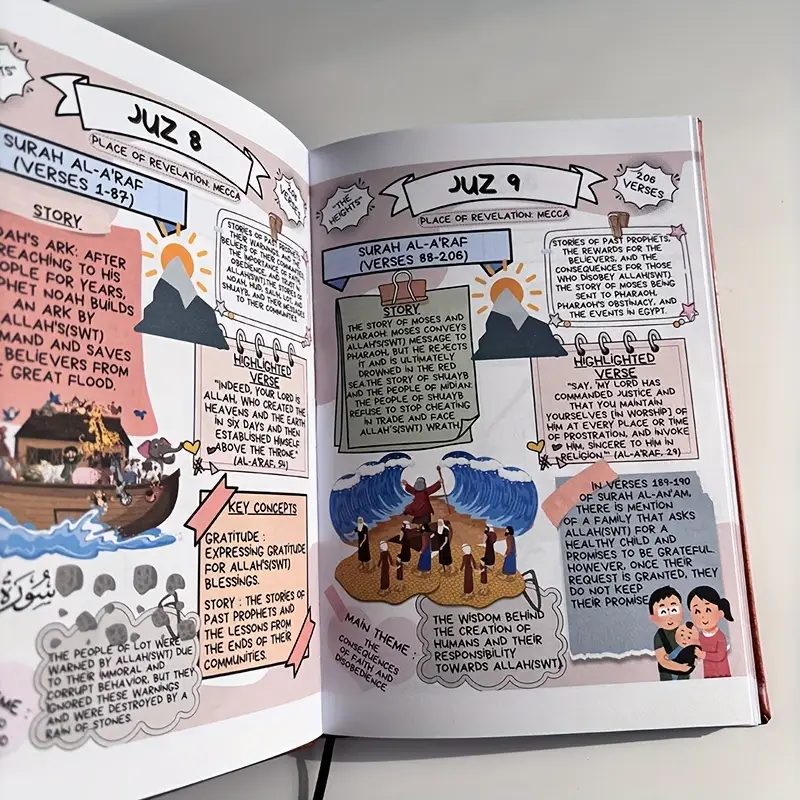 JUZ 8
PLACE OF REVELATION: MECCA
SURAH AL-A'RAF
(VERSES 1-87)
206
VERSES
STORY
ARK: AFTER
TO HIS
FOR YEARS,
NOAH BUILDS
AN ARK BY
ALLAH'S(SWT)
AND SAVES
BELIEVERS FROM
GREAT FLOOD.
STORIES OF PAST PROPHETS,
THEIR WARNINGS, AND THE
BELIEFS OF THEIR COMMUNITIES,
THE IMPORTANCE OF FAITH,
OBEDIENCE, AND TRUST IN
ALLAH(SWT).THE STORIES OF
NOAH, HUD, SALIH, LOT, AND
SHUAYB, AND THEIR MESSAGES
TO THEIR COMMUNITIES.
HIGHLIGHTED
VERSE
"INDEED, YOUR LORD IS
ALLAH, WHO CREATED THE
HEAVENS AND THE EARTH
IN SIX DAYS AND THEN
ESTABLISHED HIMSELF
ABOVE THE THRONE."
(AL-A'RAF, 54)
KEY CONCEPTS
GRATITUDE :
EXPRESSING GRATITUDE
FOR ALLAH'S(SWT)
BLESSINGS.
STORY : THE STORIES OF
PAST PROPHETS AND
THE LESSONS FROM
THE ENDS OF THEIR
COMMUNITIES.
سورة
THE PEOPLE OF LOT WERE
WARNED BY ALLAH(SWT) DUE
TO THEIR IMMORAL AND
CORRUPT BEHAVIOR, BUT THEY
IGNORED THESE WARNINGS
AND WERE DESTROYED BY A
RAIN OF STONES.
JUZ 9
PLACE OF REVELATION: MECCA
"THE
HEIGHTS"
206
VERSES
SURAH AL-A'RAF
(VERSES 88-206)
STORY
THE STORY OF MOSES AND
PHARAOH: MOSES CONVEYS
ALLAH'S(SWT) MESSAGE TO
PHARAOH, BUT HE REJECTS
IT AND IS ULTIMATELY
DROWNED IN THE RED
SEA.THE STORY OF SHUAYB
AND THE PEOPLE OF MIDIAN:
THE PEOPLE OF SHUAYB
REFUSE TO STOP CHEATING
IN TRADE AND FACE
ALLAH'S(SWT) WRATH.
STORIES OF PAST PROPHETS,
THE REWARDS FOR THE
BELIEVERS, AND THE
CONSEQUENCES FOR THOSE
WHO DISOBEY ALLAH(SWT).
THE STORY OF MOSES BEING
SENT TO PHARAOH,
PHARAOH'S OBSTINACY, AND
THE EVENTS IN EGYPT.
HIGHLIGHTED
VERSE
"SAY, 'MY LORD HAS
COMMANDED JUSTICE AND
THAT YOU MAINTAIN
YOURSELVES [IN WORSHIP] OF
HIM AT EVERY PLACE OR TIME
OF PROSTRATION, AND INVOKE
HIM, SINCERE TO HIM IN
RELIGION.'" (AL-A'RAF, 29)
IN VERSES 189-190
OF SURAH AL-AN'AM,
THERE IS MENTION
OF A FAMILY THAT ASKS
ALLAH(SWT) FOR A
HEALTHY CHILD AND
PROMISES TO BE GRATEFUL.
HOWEVER, ONCE THEIR
REQUEST IS GRANTED, THEY
DO NOT KEEP
THEIR PROMISE.
MAIN THEME :
THE
CONSEQUENCES
OF FAITH AND
DISOBEDIENCE
THE WISDOM BEHIND
THE CREATION OF
HUMANS AND THEIR
RESPONSIBILITY
TOWARDS ALLAH(SWT)